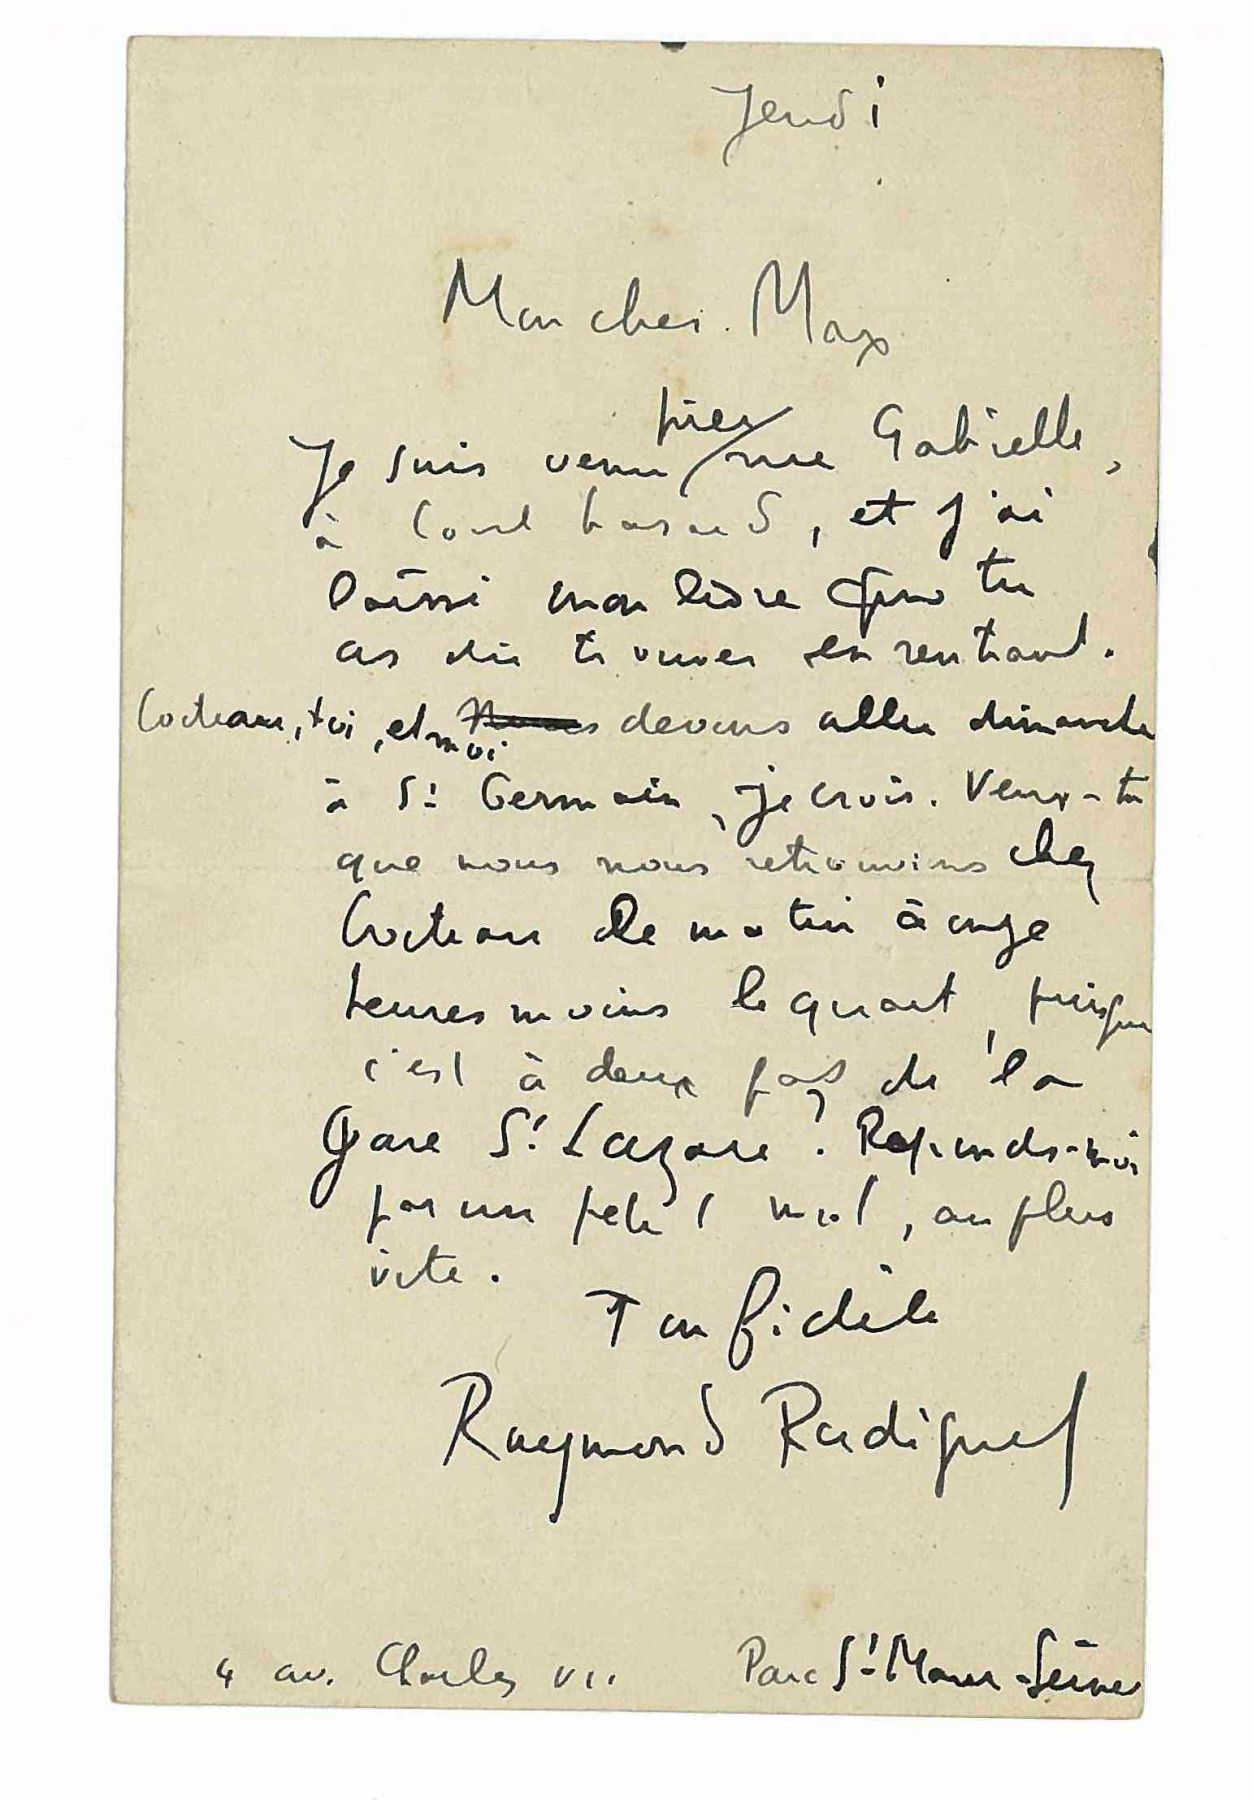 Jeudi
Mon cher Max
hier
Je suis venu rue Gabrielle,
à tout hasard, et j'ai
laissé mon livre que tu
as dû trouver en rentrant.
Cocteau, toi, et moi devons aller dimanche
à St Germain, je crois. Veux-tu
que nous nous retrouvions chez
Cocteau le matin à onze
heures moins le quart, puisque
c'est à deux pas de la
Gare St Lazare. Réponds-moi
par un petit mot, au plus
vite.
Ton fidèle
Raymond Radiguet
4 av. Charles VII Parc St-Maur-Seine